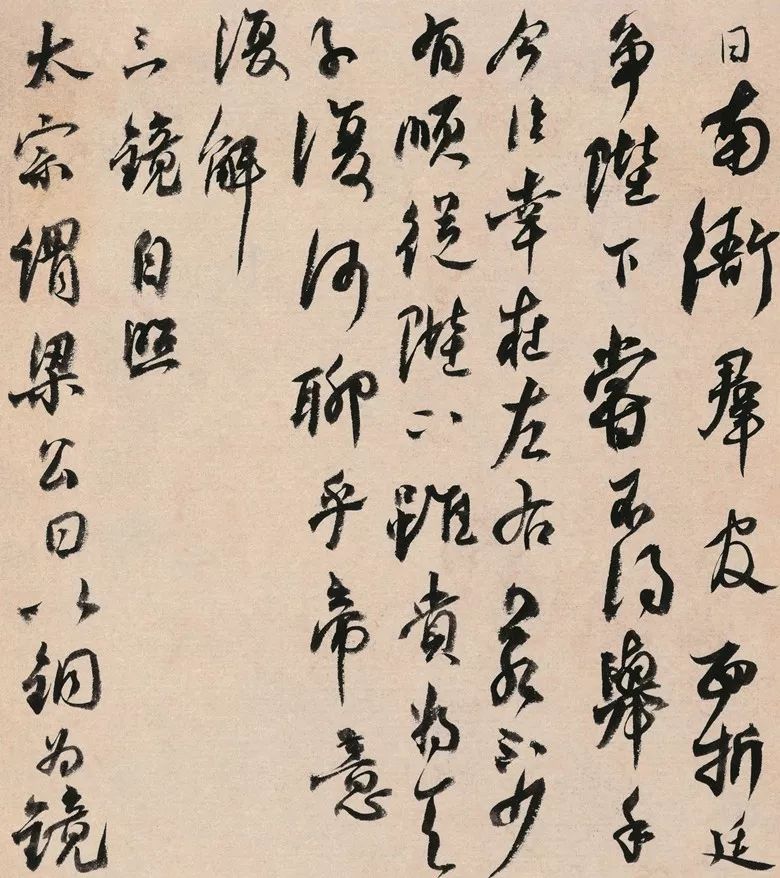 曰南衙群官面折廷
争陛下尝不得舉手
今臣幸在左右若不少
有順從陛下雖貴為天
子復何聊乎帝意
復解
三鏡自照
太宗謂梁公曰以銅為鏡